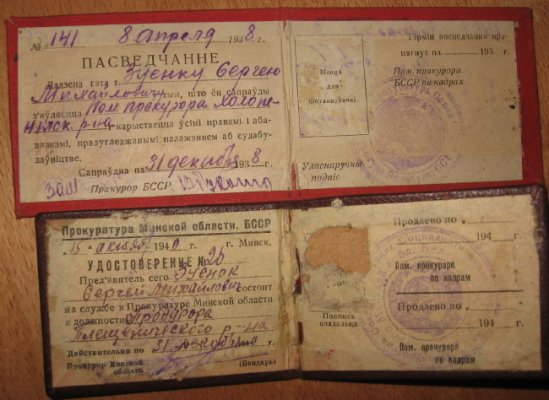 № 141 8 апреля 1938 г.
ПАСВЕДЧАННЕ
Дадзена гэта т. Зуенку Сергею
Михайловичу у тым, што ён сапраўды
з'яўляецца Пом прокурора
р-на карыстаецца ўсімі правамі і аба-
вязкамі, прадугледжаным палажэннем аб судабу-
даўніцтве.
Сапраўдна па 31 декабря 1938 г.
Пракурор БССР
Месца
для
фотакарткі
Уласнаручны
подпіс
Тэрмін пасведчання пра-
цягнут па 193 г.
Пом. пракурора
БССР па кадрах
Прокуратура Минской области, БССР
15 октября 1940 г. г. Минск.
УДОСТОВЕРЕНИЕ № 26
Пред'явитель сего Зуенок
Сергей Михайлович состоит
на службе в Прокуратуре Минской области
в должности Прокурора
Плещенического р-на
Действительно по 31 декабря
Прокурор Минской
области (Бондарь)
Подпись
владельца
Продлено по
194 г.
Пом. прокурора
по кадрам
Продлено по
194 г.
Пом. прокурора
по кадрам